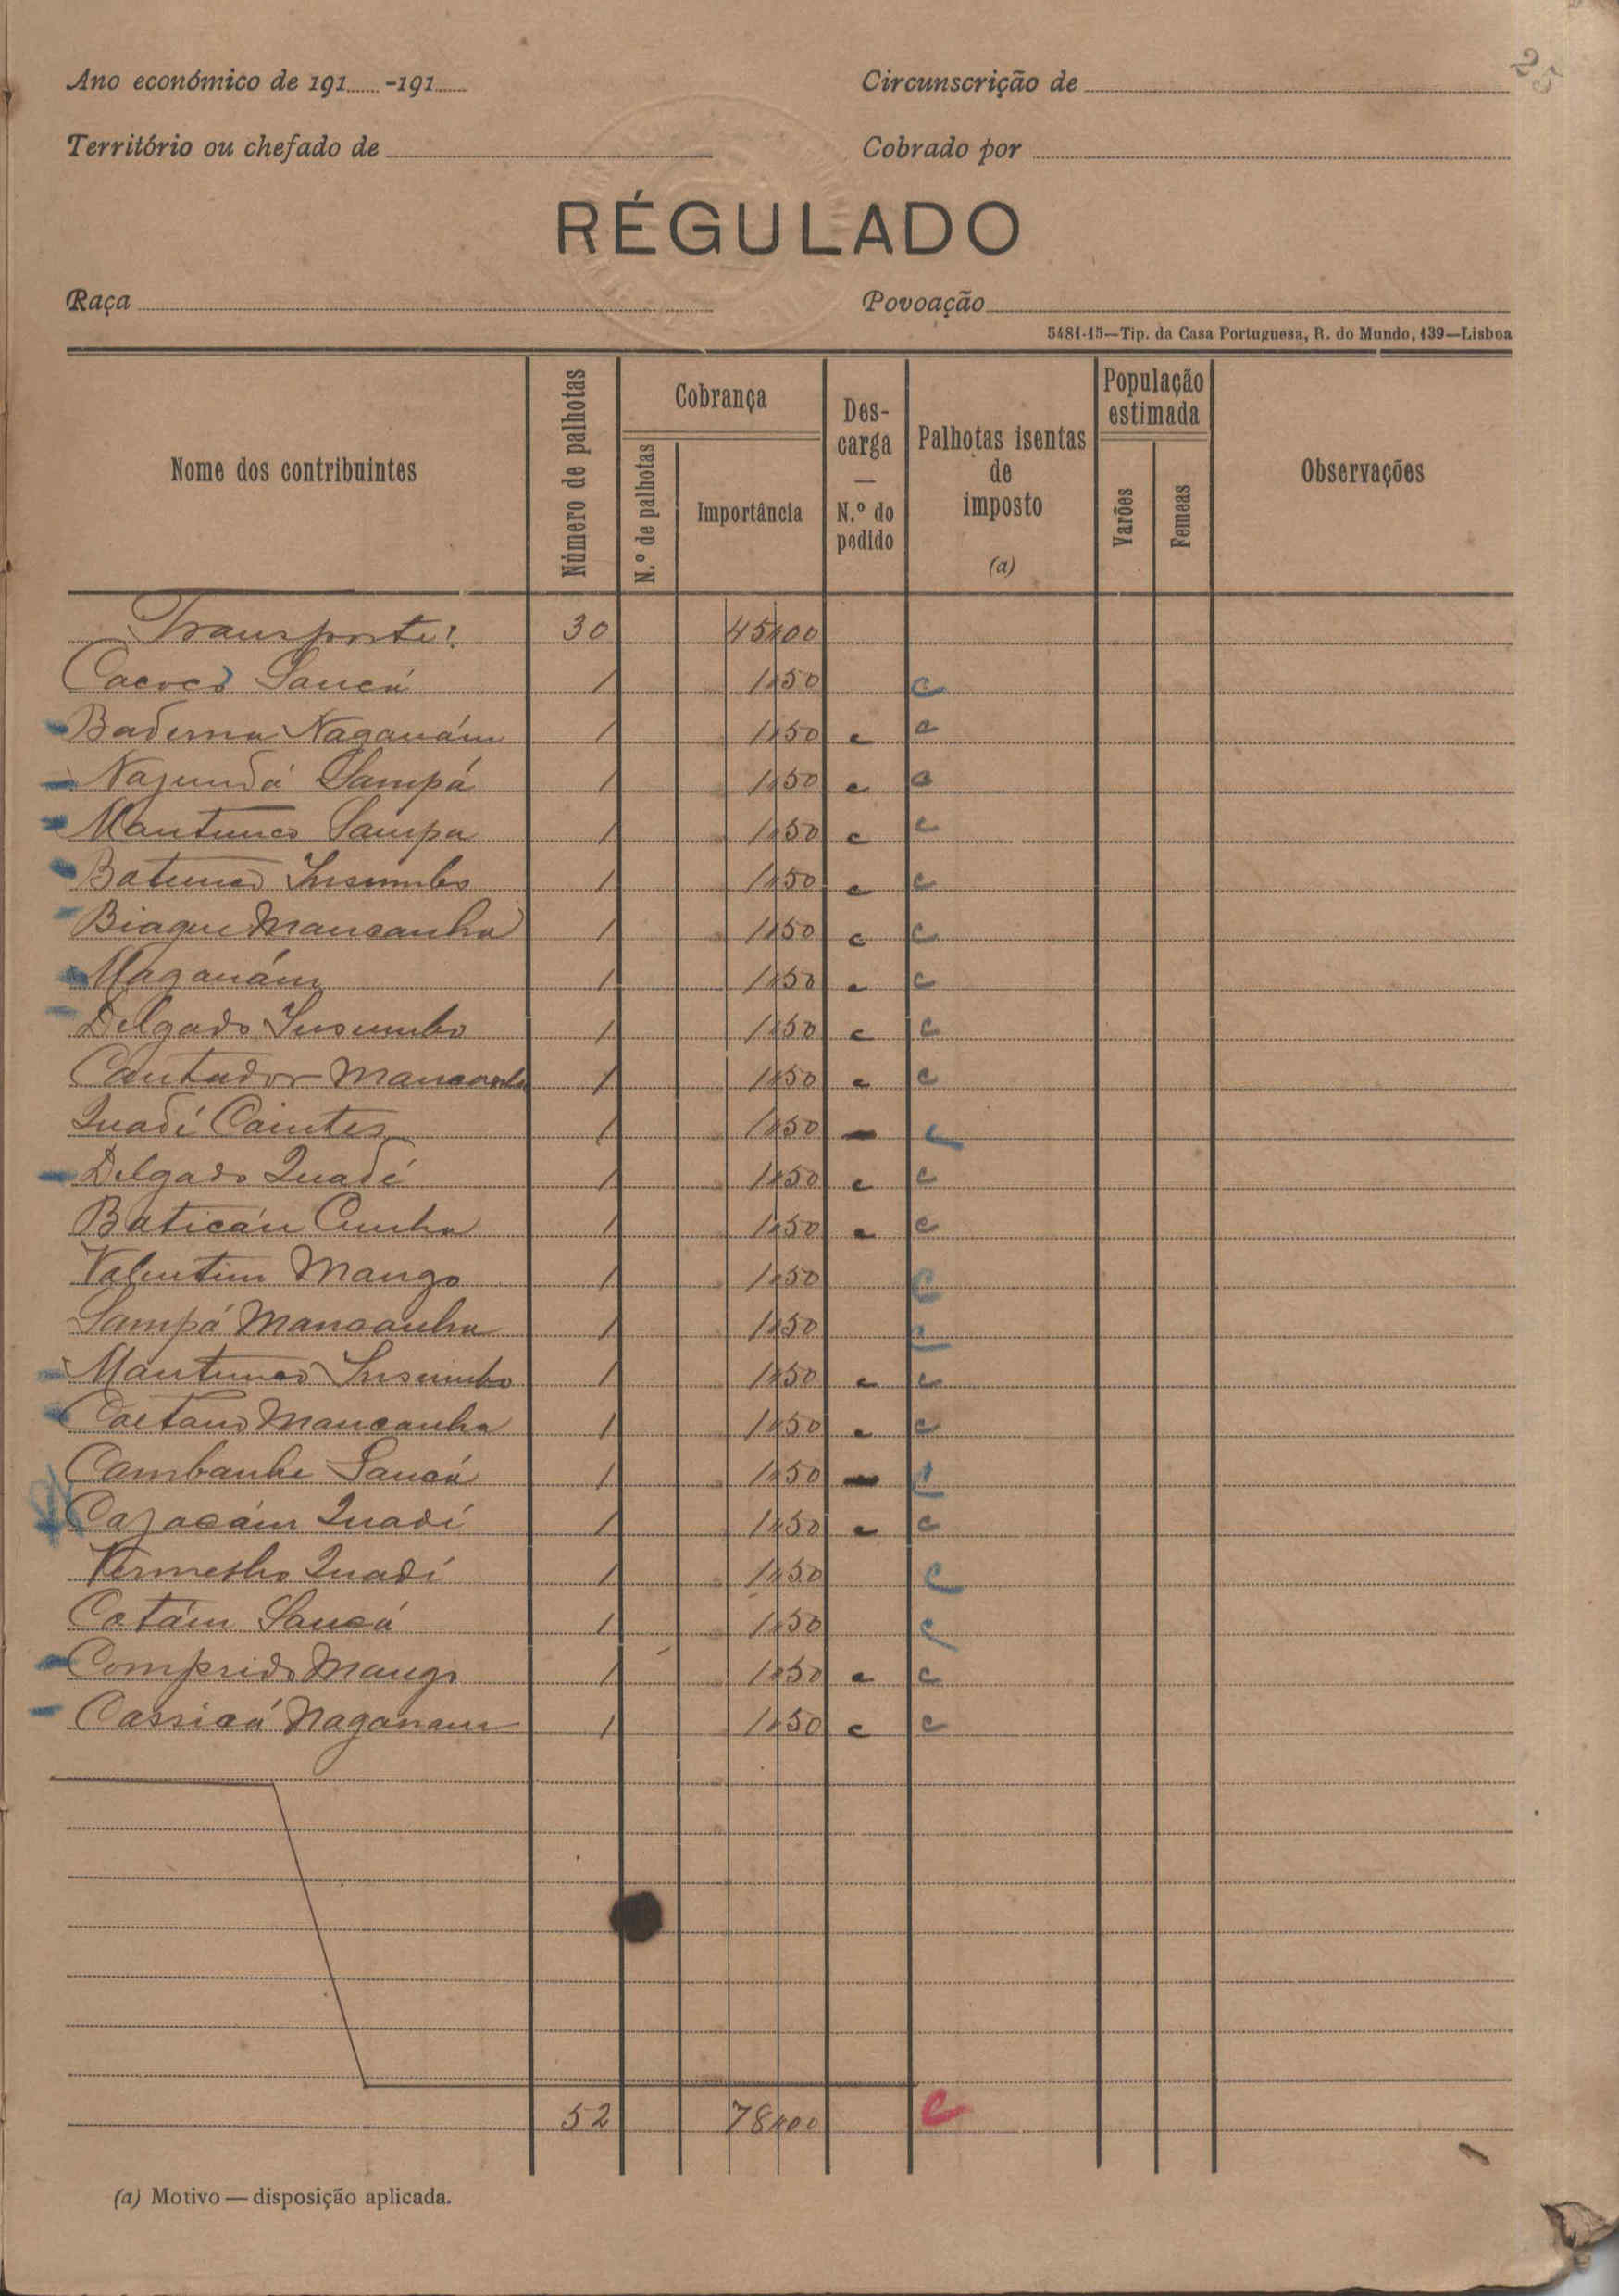 25
Ano económico de 191......-191......
Circunscrição de
Território ou chefado de
Cobrado por
RÉGULADO
Raça
Povoação
5481-15—Tip. da Casa Portuguesa, R. do Mundo, 139—Lisboa
Nome dos contribuintes
Número de palhotas
Cobrança
N.º de palhotas
Importância
Descarga — N.º do pedido
Palhotas isentas de imposto (a)
População estimada
Varões
Femeas
Observações
Transporte! 30 45$00
Cacocó Sancá 1 1$50 c
Baderna Naganám 1 1$50 c c
Nagundá Sampá 1 1$50 c c
Mantunco Sampa 1 1$50 c c
Batunco Insumbo 1 1$50 c c
Biague Mancanha 1 1$50 c c
Naganám 1 1$50 c c
Delgado Insumbo 1 1$50 c c
Cantador Mancanha 1 1$50 c c
Quadi Caintes 1 1$50 c
Delgado Quadé 1 1$50 c c
Baticán Cunha 1 1$50 c c
Valentim Mango 1 1$50 c
Sampá Mancanha 1 1$50 c
Mantunco Insumbo 1 1$50 c c
Caetano Mancanha 1 1$50 c c
Cambanhe Sancá 1 1$50 c
Cajacám Quadi 1 1$50 c c
Vermelho Quadi 1 1$50 c
Catám Sancá 1 1$50 c
Comprido Mango 1 1$50 c c
Cassicá Naganam 1 1$50 c c
52 78$00 c
(a) Motivo — disposição aplicada.